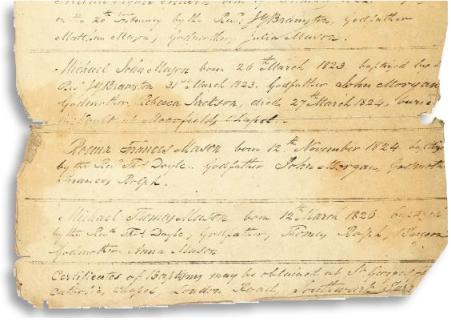 on the 20th February by the Revd J Y Bramston, Godfather
Matthew Mason, Godmother, Julia Mason.
Michael John Mason born 26th March 1823 baptized by
Revd J Y Bramston 31st March 1823. Godfather John Morgan
Godmother Rebecca Jackson, died 27th March 1824, buried
in Vault at Moorfields Chapel.
Frances Mason born 12th November 1824
by the Revd Thos Doyle. Godfather John Morgan, Godmother
Frances Ralph.
Michael Thomas Mason born 12th March 1826
by the Revd Thos Doyle, Godfather, Thomas Ralph,
Godmother Anna Mason
Certificates of Baptism may be obtained at St Georges
Catholic Chapel London Road, Southwark